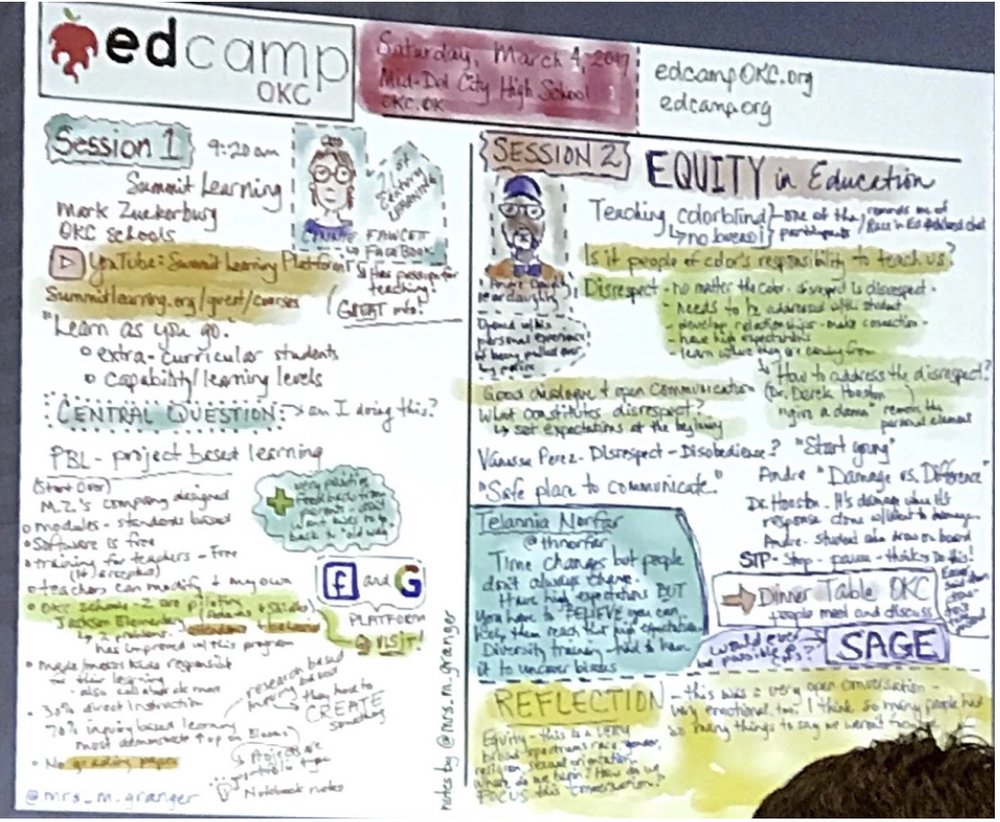 edcamp
OKC
Saturday, March 4, 2017
Mid-Del City High School
OKC.OK
edcampOKC.org
edcamp.org
Session 1 9:20am
Summit Learning
Mark Zuckerburg
OKC schools
CEO
FAWCETT
FaceBook
21st
Century
LEARNING
YouTube: Summit Learning Platform
Summitlearning.org/guest/courses
Has passion for
teaching!
(GREAT info!
"Learn as you go."
extra-curricular students
capability/learning levels
CENTRAL QUESTION: am I doing this?
PBL - project based learning
(Start Over)
M.Z.'s company designed
modules - standards based
Software is free
training for teachers - Free
teachers can modify + my own
OKC schools - 2 are piloting
Jackson Elementary
2 problems:
has improved w/this program
Makes/motivates kids responsible
for their learning
- also collaborate more
30% direct instruction
70% inquiry based learning
must demonstrate ↑ on Blooms
No grading paper
very positive
feedback from
parents
back to "old way"
f and G
PLATFORM
VISIT!
research based
they have to
CREATE
something
Projects are
portfolio type
Notebook notes
@mrs_m_granger
notes by @mrs_m_granger
SESSION 2
EQUITY in Education
Teaching colorblind - one of the participants
no bueno
Is it people of color's responsibility to teach us?
Disrespect - no matter the color - disrespect is disrespect -
needs to be addressed with student
- develop relationships - make connection -
- have high expectations
- learn where they are coming from
Opened w/his
personal experience
of being pulled over
by police
Good dialogue & open communication
What constitutes disrespect?
set expectations at the beginning
How to address the disrespect?
(Dr. Derek Houston
"give a damn" remove the
personal element
Vanessa Perez - Disrespect - Disobedience? "Start young"
"Safe place to communicate."
Andre "Damage vs. Difference"
Dr. Houston - It's damage when it's
response done w/intent to damage.
Andre - student who drew on board
STP - Stop - pause - think - Do this!
Telannia Norfar
@thnorfar
Time changes but people
don't always change.
Have high expectations BUT
You have to BELIEVE you can
help them reach that high expectation
Diversity training - had to have
it to uncover biases
Dinner Table OKC
people meet and discuss
would ever
be possible
SAGE
REFLECTION - this was a very open conversation -
very emotional, too. I think so many people had
so many things to say we weren't
Equity - this is a VERY
broad spectrum: race, gender,
religion, sexual orientation.
where do we begin? How do we
FOCUS this conversation?